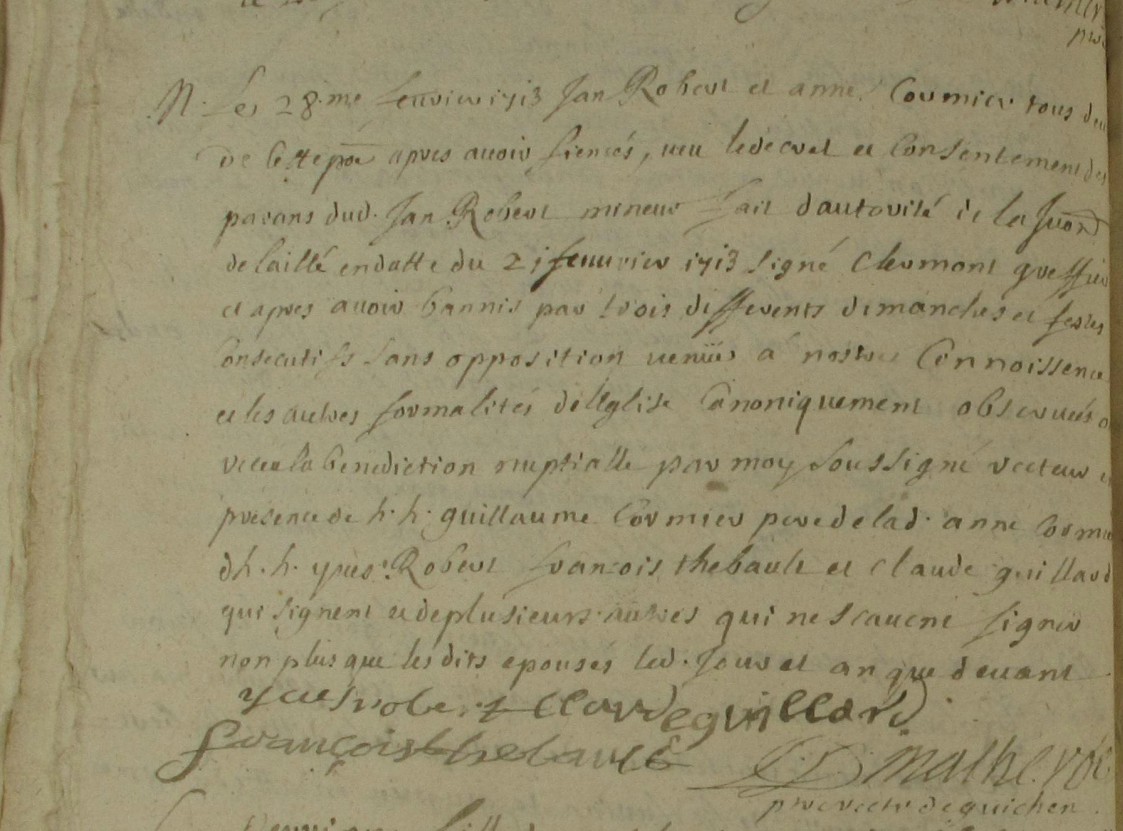 N. Les 28.me feuvrier 1713 Jan Robert et anne Cormier tous deu
de cette poe apres avoir fiencés, veu le decret et Consentement des
parans dud. Jan Robert mineur fait d'autorité de la Jurond
de laillé en datte du 21 feuuvrier 1713 signé Clermont greffier
et apres avoir bannis par trois differents dimanches et festes
Consecutifs sans opposition venüe a nostre Connoissence
et les autres formalités de l'Eglise Canoniquement observeés o
receu la benediction nuptialle par moy soussigné recteur e
presence de h.h. guillaume Cormier pere de lad. anne Cormie
d h.h. yves Robert francois thebault et Claude guillard
qui signent et de plusieurs autres qui ne scavent signer
non plus que les dits epousés led. Jour et an que devant
yves robert Claude guillard
françois thebault
malherbe
pre recteur de guichen